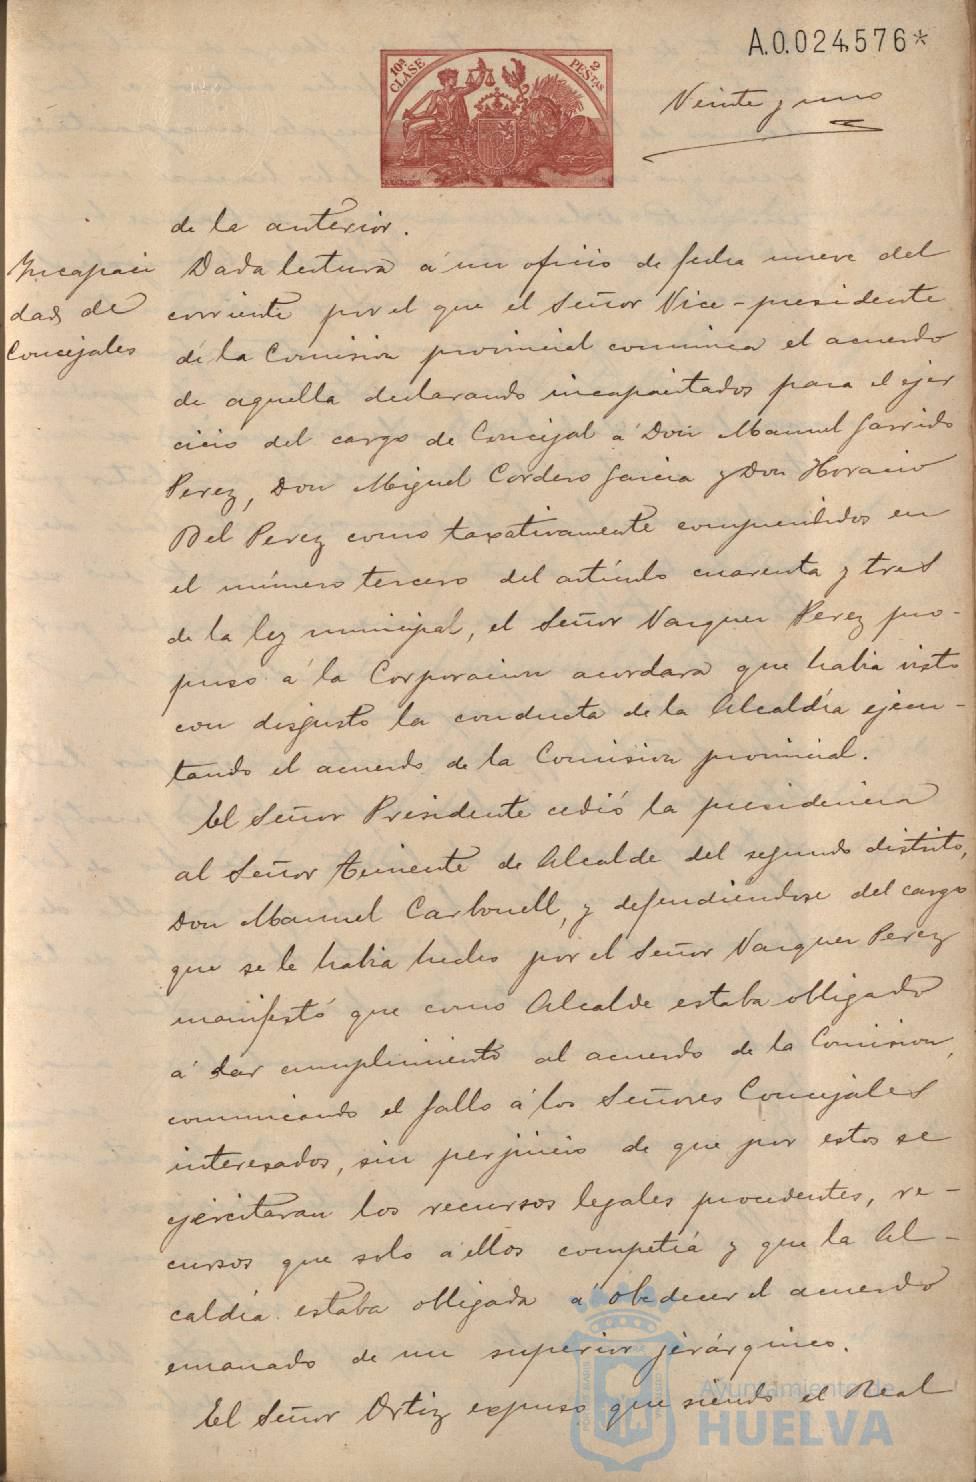 A.0.024,576*
10ª CLASE
2 PESTAS
Veinte y uno
de la anterior.
Incapaci
dad de
Concejales
Dada lectura á un oficio de fecha nueve del
corriente por el que el Señor Vice-presidente
de la Comision provincial comunica el acuerdo
de aquella declarando incapacitados para el ejer
cicio del cargo de Concejal á Don Manuel Garrido
Perez, Don Miguel Cordero Garcia y Don Horacio
Bel Perez como taxativamente comprendidos en
el número tercero del artículo cuarenta y tres
de la ley municipal, el Señor Vazquez Perez pro-
puso á la Corporacion acordara que habia visto
con disgusto la conducta de la Alcaldía ejecu-
tando el acuerdo de la Comision provincial.
El Señor Presidente cedió la presidencia
al Señor Teniente de Alcalde del segundo distrito,
Don Manuel Carbonell, y defendiendose del cargo
que se le habia hecho por el Señor Vazquez Perez
manifestó que como Alcalde estaba obligado
á dar cumplimiento al acuerdo de la Comision,
comunicando el fallo á los Señores Concejales
interesados, sin perjuicio de que por estos se
ejercitaran los recursos legales procedentes, re-
cursos que solo á ellos competía y que la Al-
caldía estaba obligada á obedecer el acuerdo
emanado de un superior jerárquico.
El Señor Ortiz expuso que siendo el Real
Ayuntamiento de
HUELVA